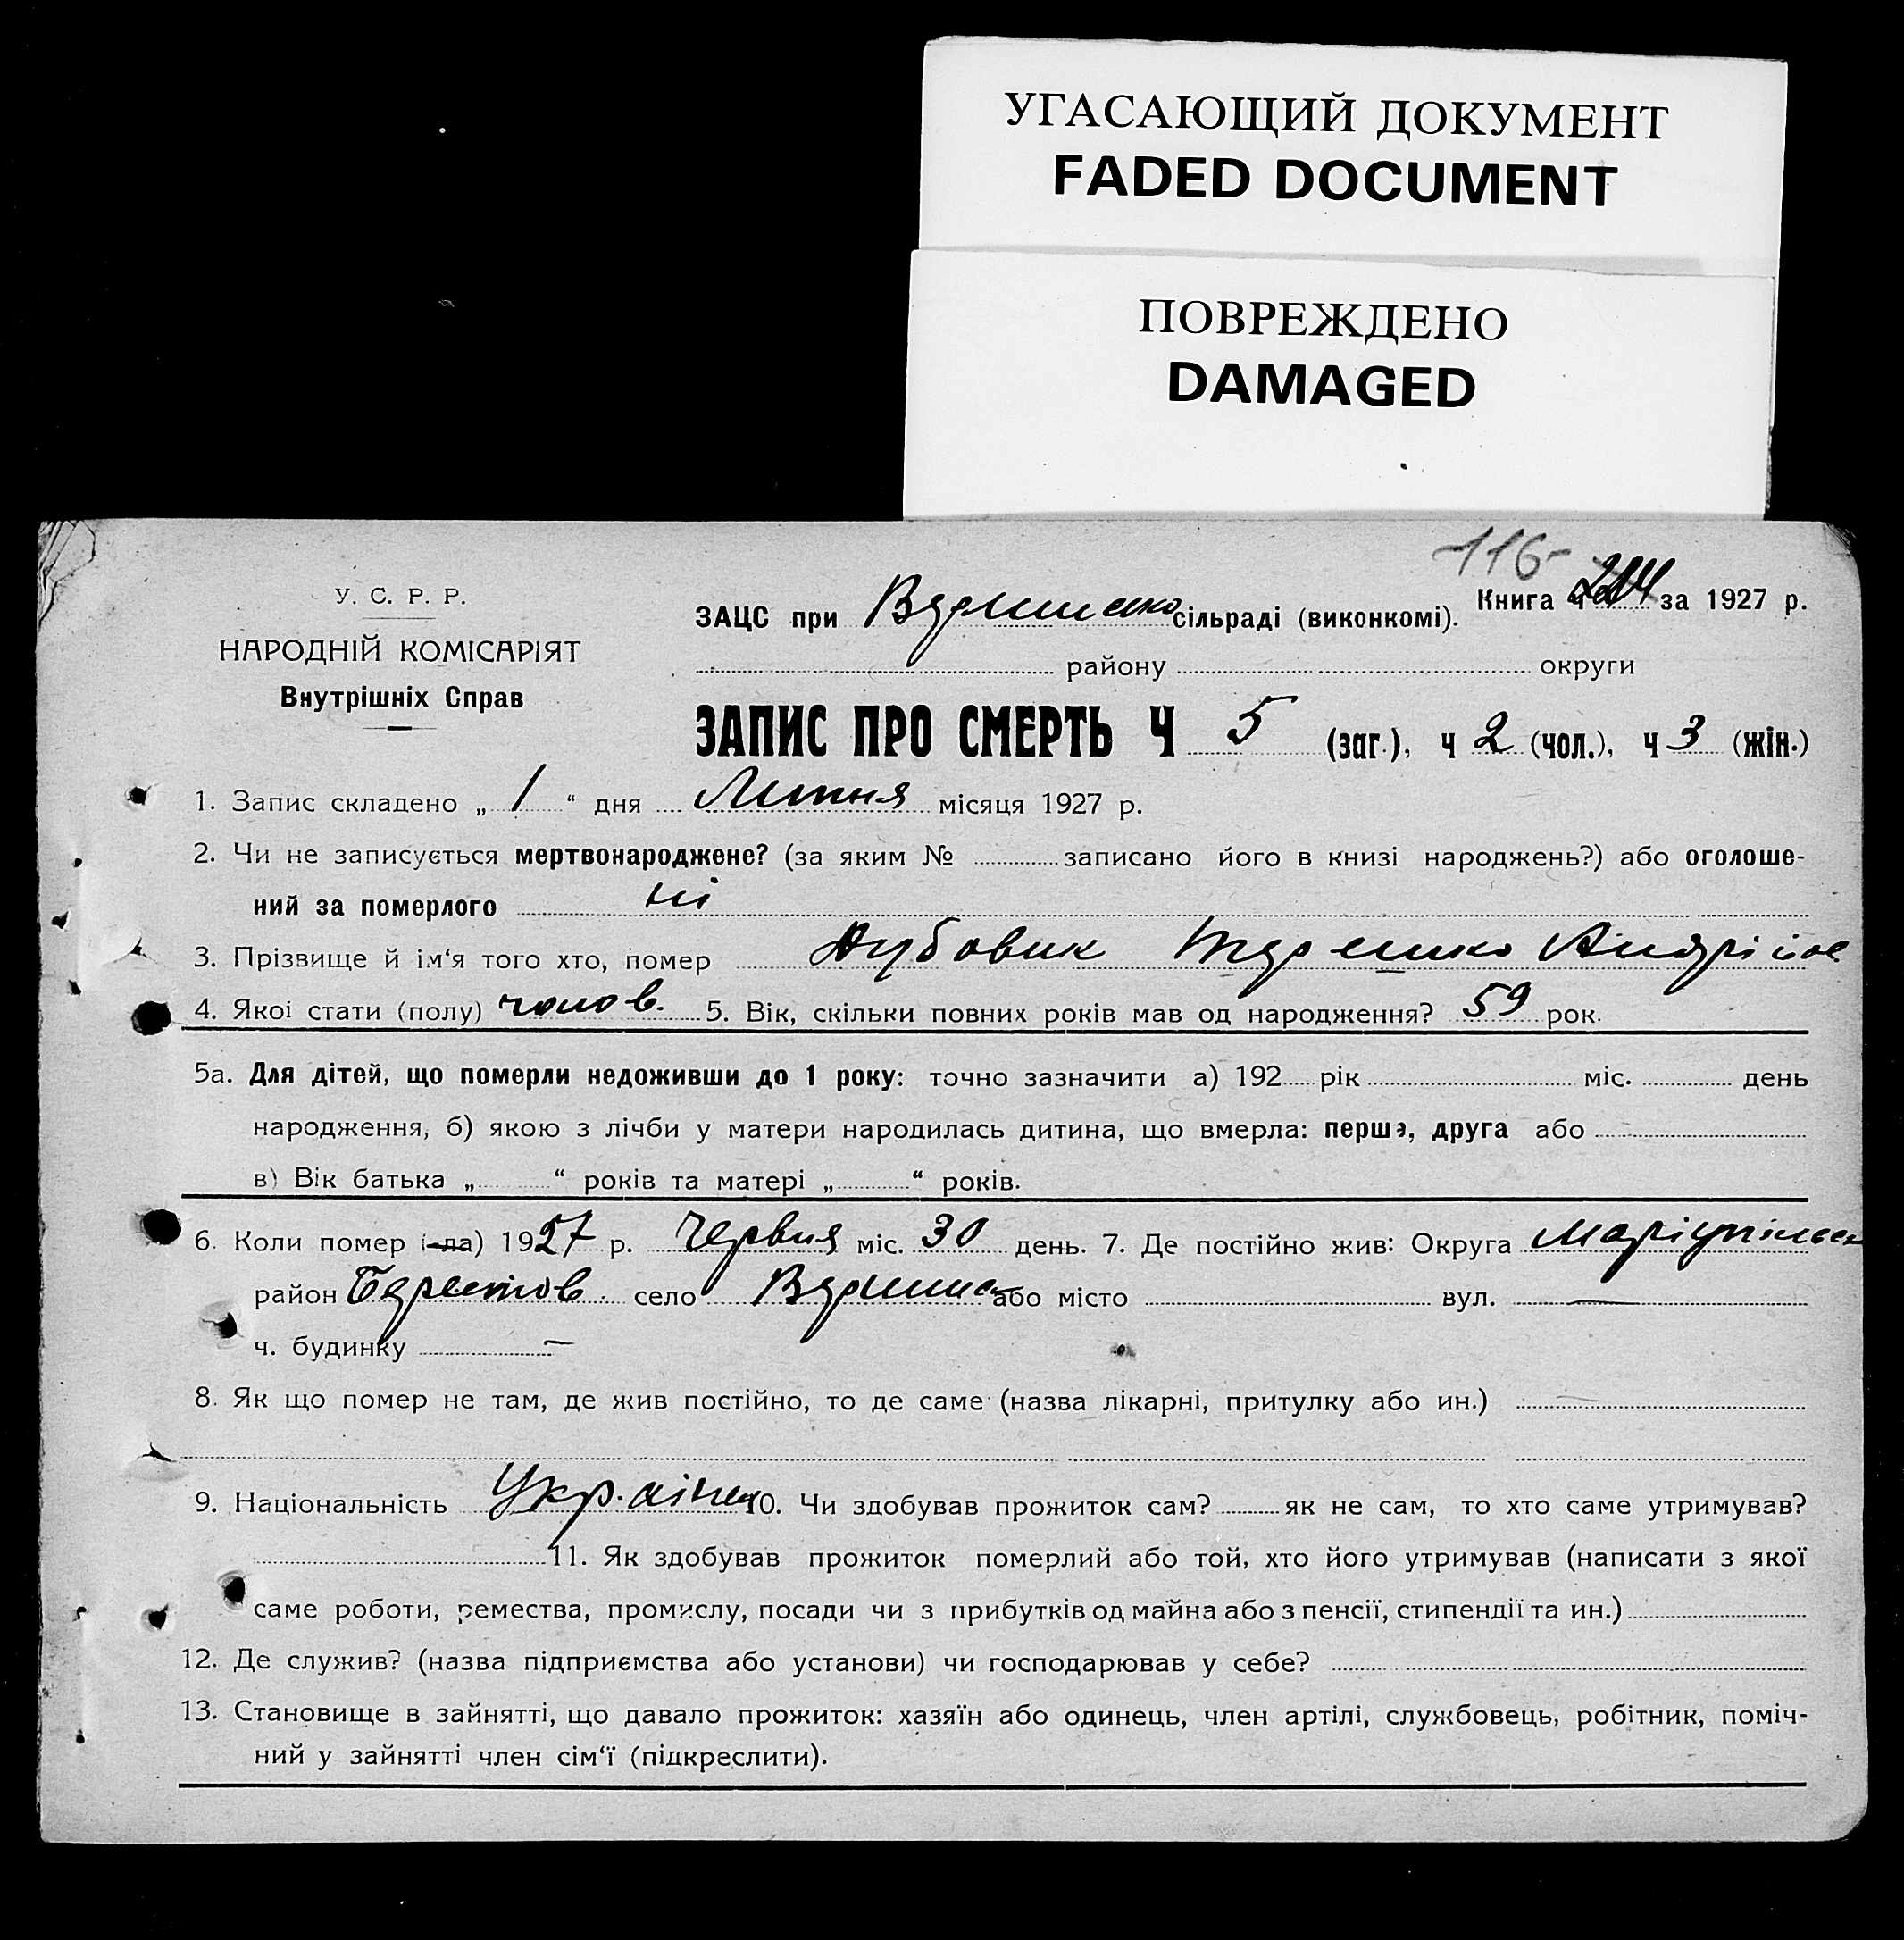 УГАСАЮЩИЙ ДОКУМЕНТ
FADED DOCUMENT
ПОВРЕЖДЕНО
DAMAGED
-116-
У. С. Р. Р.
НАРОДНІЙ КОМІСАРІЯТ
Внутрішніх Справ
Книга ч за 1927 р.
ЗАЦС при сільраді (виконкомі).
району округи
ЗАПИС ПРО СМЕРТЬ Ч 5 (заг.), ч 2 (чол.), ч 3 (жін.)
1. Запис складено „ 1 “ дня Липня місяця 1927 р.
2. Чи не записується мертвонароджене? (за яким № записано його в книзі народжень?) або оголоше-
ний за померлого ні
3. Прізвище й ім‘я того хто, помер Дубовик
4. Якої стати (полу) чолов. 5. Вік, скільки повних років мав од народження? 59 рок.
5а. Для дітей, що померли недоживши до 1 року: точно зазначити а) 192 рік міс. день
народження, б) якою з лічби у матери народилась дитина, що вмерла: перша, друга або
в) Вік батька „ “ років та матері „ “ років.
6. Коли помер (-ла) 1927 р. Червня міс. 30 день. 7. Де постійно жив: Округа Маріупільськ
район село або місто вул. —
ч. будинку —
8. Як що помер не там, де жив постійно, то де саме (назва лікарні, притулку або ин.) —
9. Національність 10. Чи здобував прожиток сам? як не сам, то хто саме утримував?
11. Як здобував прожиток померлий або той, хто його утримував (написати з якої
саме роботи, ремества, промислу, посади чи з прибутків од майна або з пенсії, стипендії та ин.)
12. Де служив? (назва підприємства або установи) чи господарював у себе?
13. Становище в зайнятті, що давало прожиток: хазяїн або одинець, член артілі, службовець, робітник, поміч-
ний у зайнятті член сім‘ї (підкреслити).